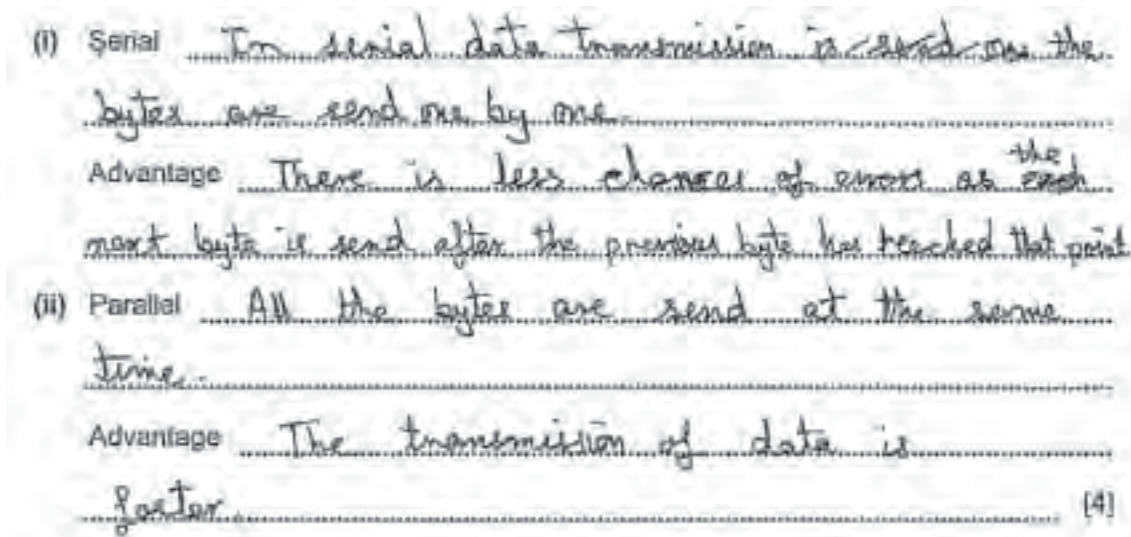 (i) Serial In serial data transmission is send one the
bytes are send one by one.
Advantage There is less chances of errors as each the
next byte is send after the previous byte has reached that point
(ii) Parallel All the bytes are send at the same
time.
Advantage The transmission of data is
faster [4]